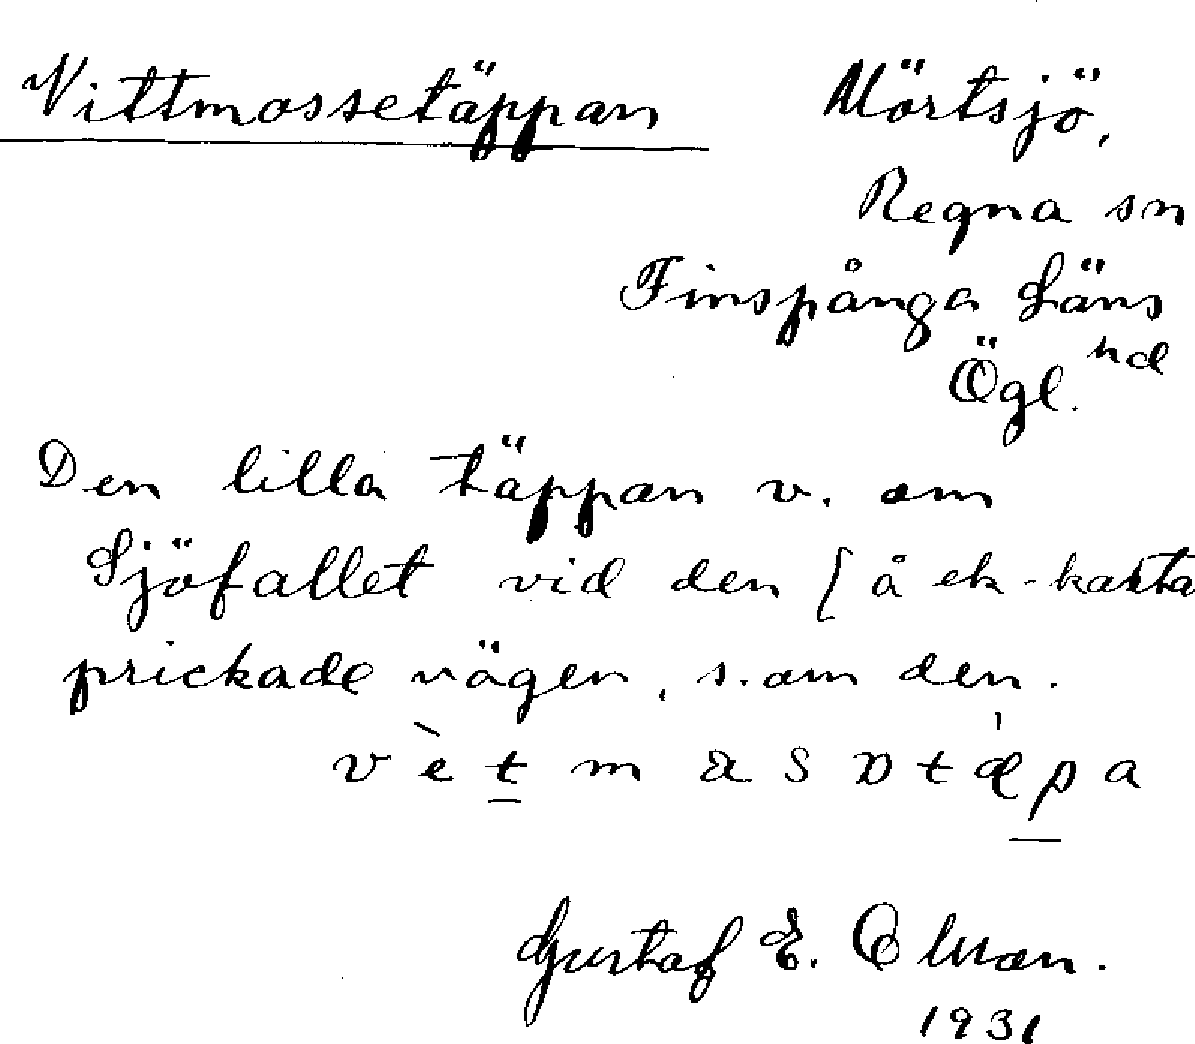 Vittmossetäppan Mörtsjö,
Regna sn
Finspånga Läns
hd
Ögl.
Den lilla täppan v. om
Sjöfallet vid den [ å ek-karta
prickade vägen, s.om den.
vètmasotǽpa
Gustaf E. Olman.
1931